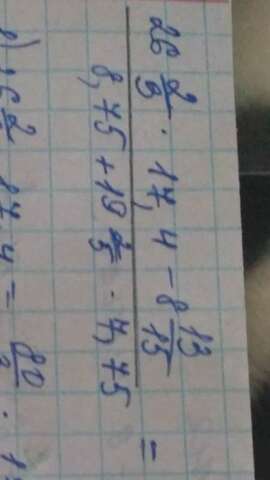 26 2/3 · 17,4 − 8 13/15
8,75 + 19 · 7,75 =
1) 26 2/3 · 17,4 = 80/3 ·